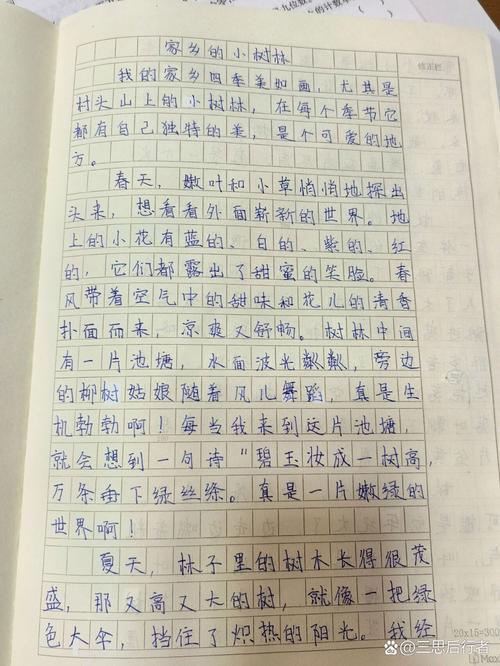 家乡的小树林
我的家乡四季美如画，尤其是
村头山上的小树林，在每个季节它
都有自己独特的美，是个可爱的地
方。
春天，嫩叶和小草悄悄地探出
头来，想看看外面崭新的世界。地
上的小花有蓝的、白的、紫的、红
的，它们都露出了甜蜜的笑脸。春
风带着空气中的甜味和花儿的清香
扑面而来，凉爽又舒畅。树林中间
有一片池塘，水面波光粼粼，旁边
的柳树姑娘随着风儿舞蹈，真是生
机勃勃啊！每当我来到这片池塘，
就会想到一句诗“碧玉妆成一树高，
万条垂下绿丝绦。真是一片嫩绿的
世界啊！
夏天，林子里的树木长得很茂
盛，那又高又大的树，就像一把绿
色大伞，挡住了炽热的阳光。我经
修正栏
20x15=300
Max
@三思后行者